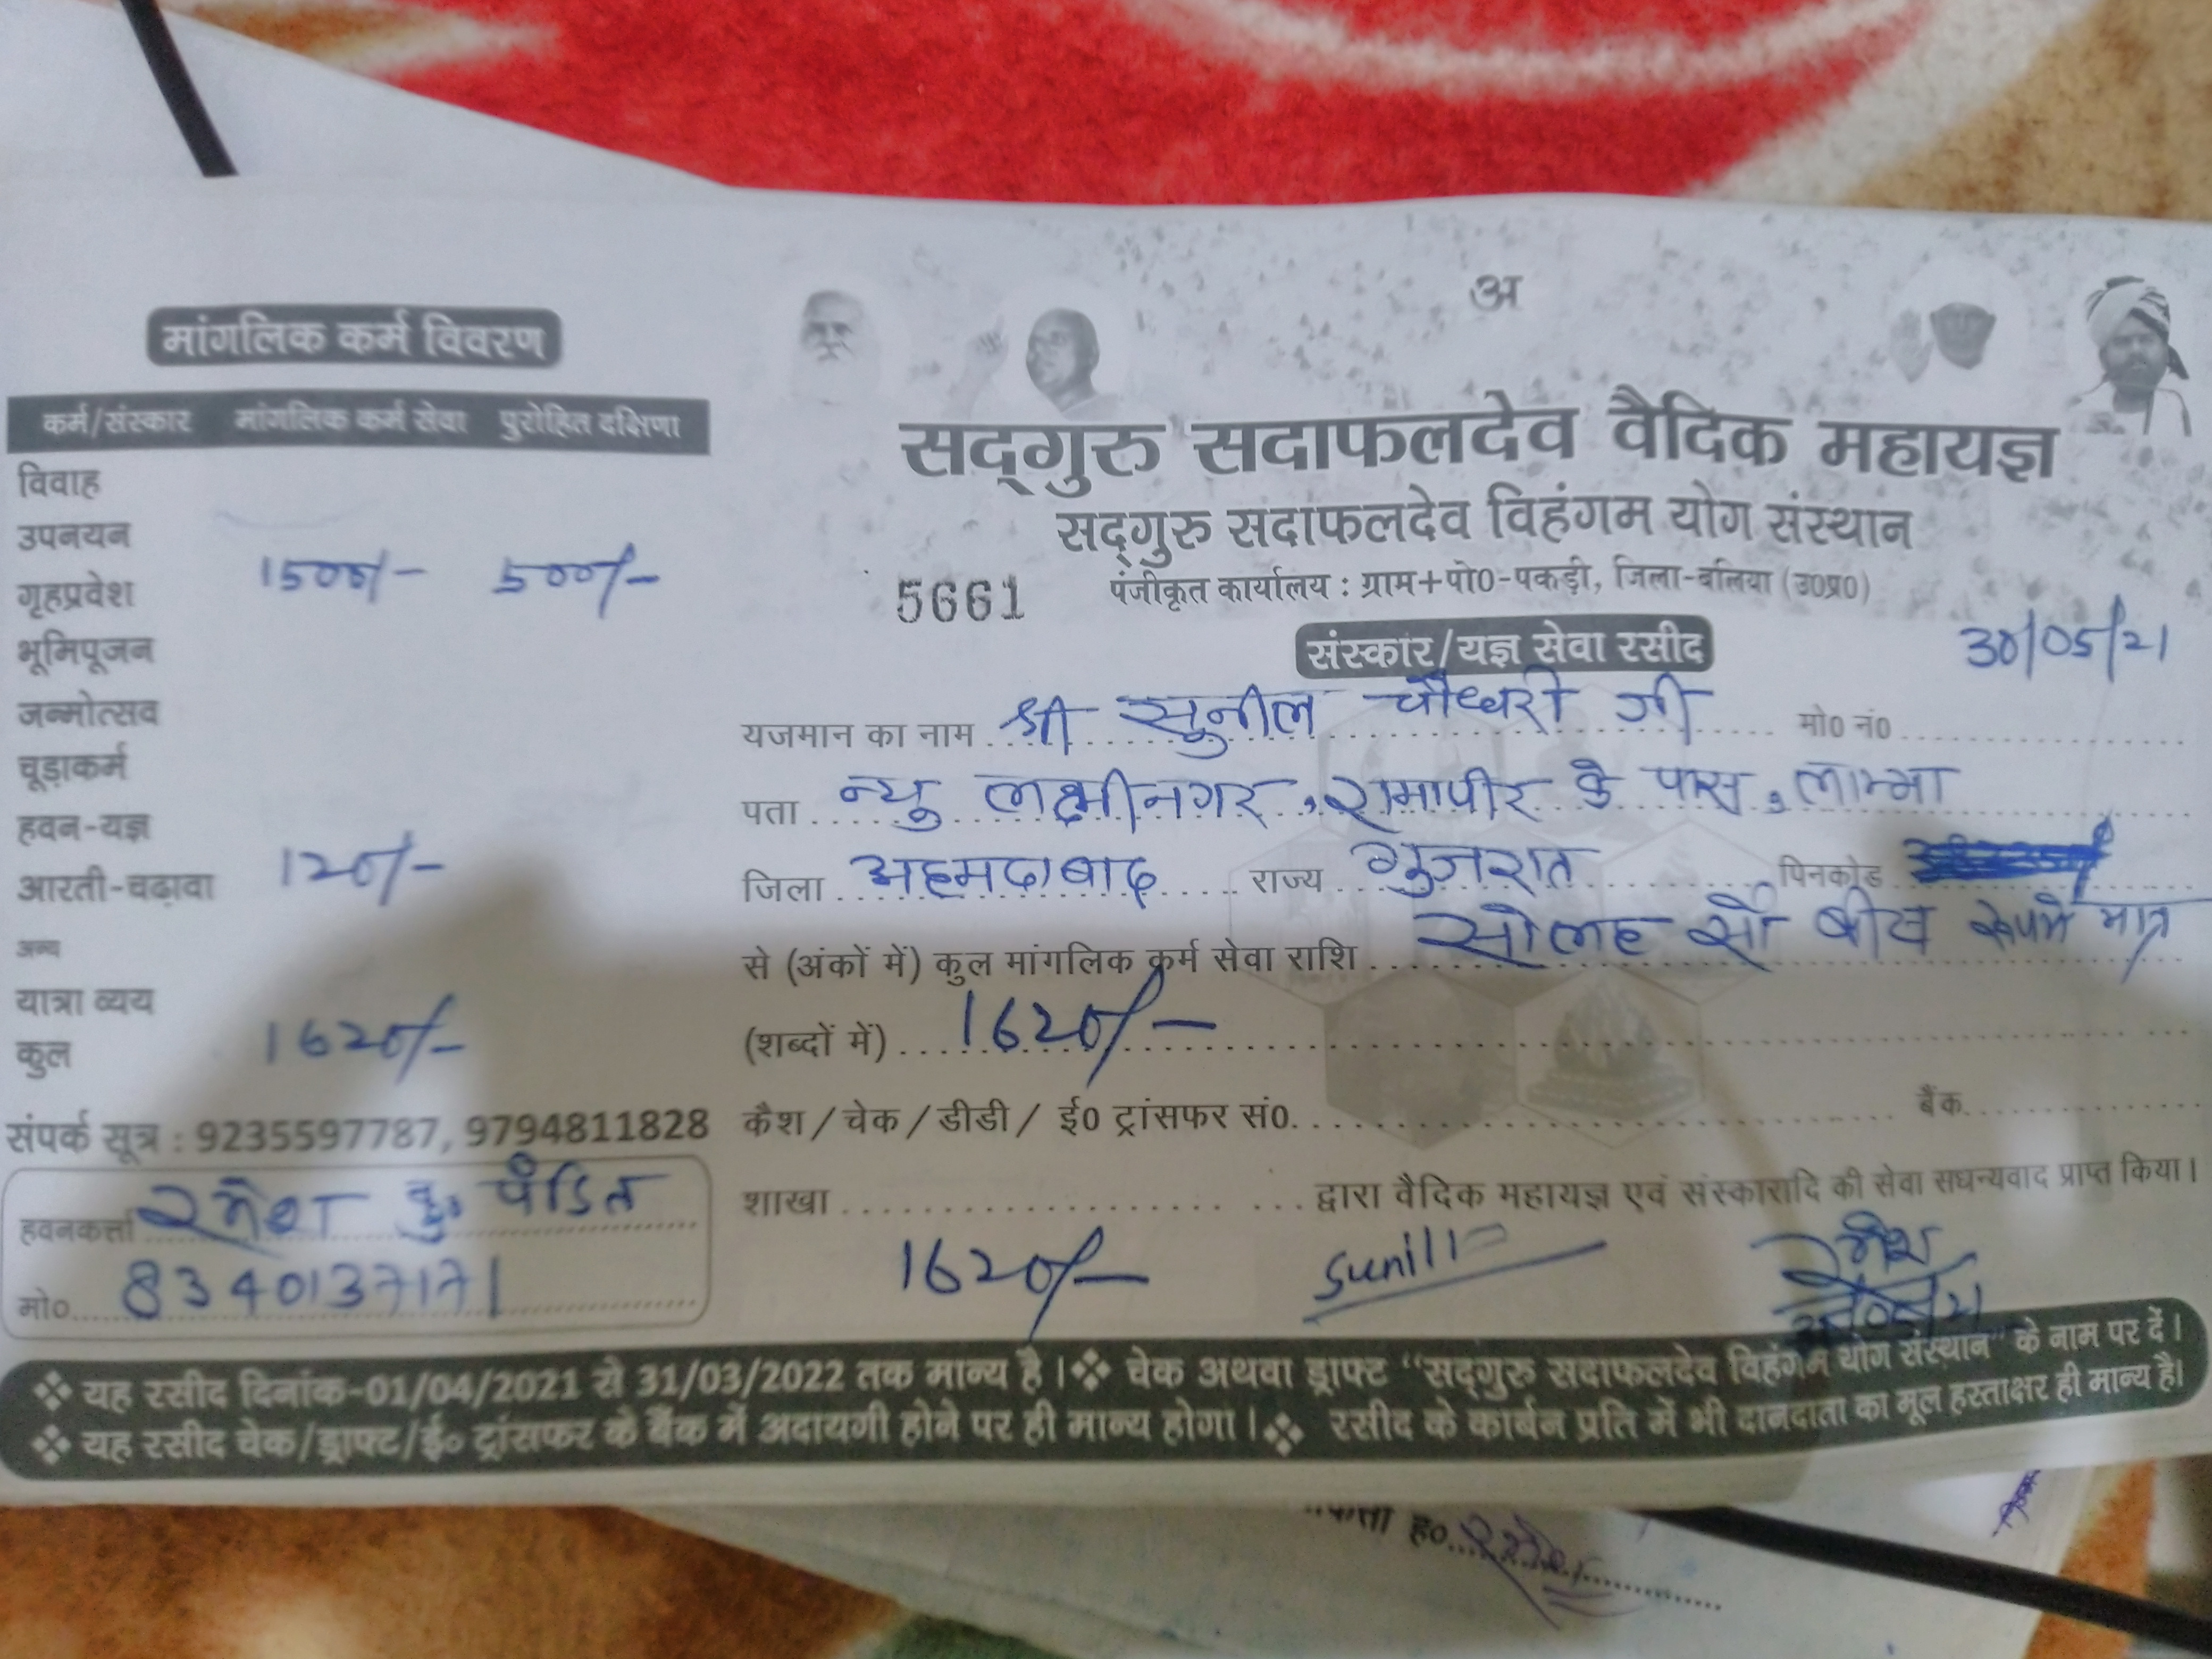 मांगलिक कर्म विवरण
कर्म/संस्कार मांगलिक कर्म सेवा पुरोहित दक्षिणा
विवाह
उपनयन
गृहप्रवेश 1500/- 500/-
भूमिपूजन
जन्मोत्सव
चूड़ाकर्म
हवन-यज्ञ
आरती-चढ़ावा 120/-
अन्य
यात्रा व्यय
कुल 1620/-
संपर्क सूत्र : 9235597787, 9794811828
हवनकर्त्ता रमेश कु० पंडित
मो० 8340137171
अ
सद्गुरु सदाफलदेव वैदिक महायज्ञ
सद्गुरु सदाफलदेव विहंगम योग संस्थान
5661 पंजीकृत कार्यालय : ग्राम+पो0-पकड़ी, जिला-बलिया (उ0प्र0)
संस्कार/यज्ञ सेवा रसीद 30/05/21
यजमान का नाम श्री सुनील चौधरी जी मो० नं०
पता न्यु लक्ष्मीनगर, रामापीर के पास, लाम्भा
जिला अहमदाबाद राज्य गुजरात पिनकोड
से (अंकों में) कुल मांगलिक कर्म सेवा राशि सोलह सौ बीस रूपये मात्र
(शब्दों में) 1620/-
कैश / चेक / डीडी / ई0 ट्रांसफर सं0. बैंक
शाखा द्वारा वैदिक महायज्ञ एवं संस्कारादि की सेवा सधन्यवाद प्राप्त किया।
1620/- रमेश
❖ यह रसीद दिनांक-01/04/2021 से 31/03/2022 तक मान्य है।❖ चेक अथवा ड्राफ्ट “सद्गुरु सदाफलदेव विहंगम योग संस्थान” के नाम पर दें।
❖ यह रसीद चेक/ड्राफ्ट/ई० ट्रांसफर के बैंक में अदायगी होने पर ही मान्य होगा।❖ रसीद के कार्बन प्रति में भी दानदाता का मूल हस्ताक्षर ही मान्य है।
ह०